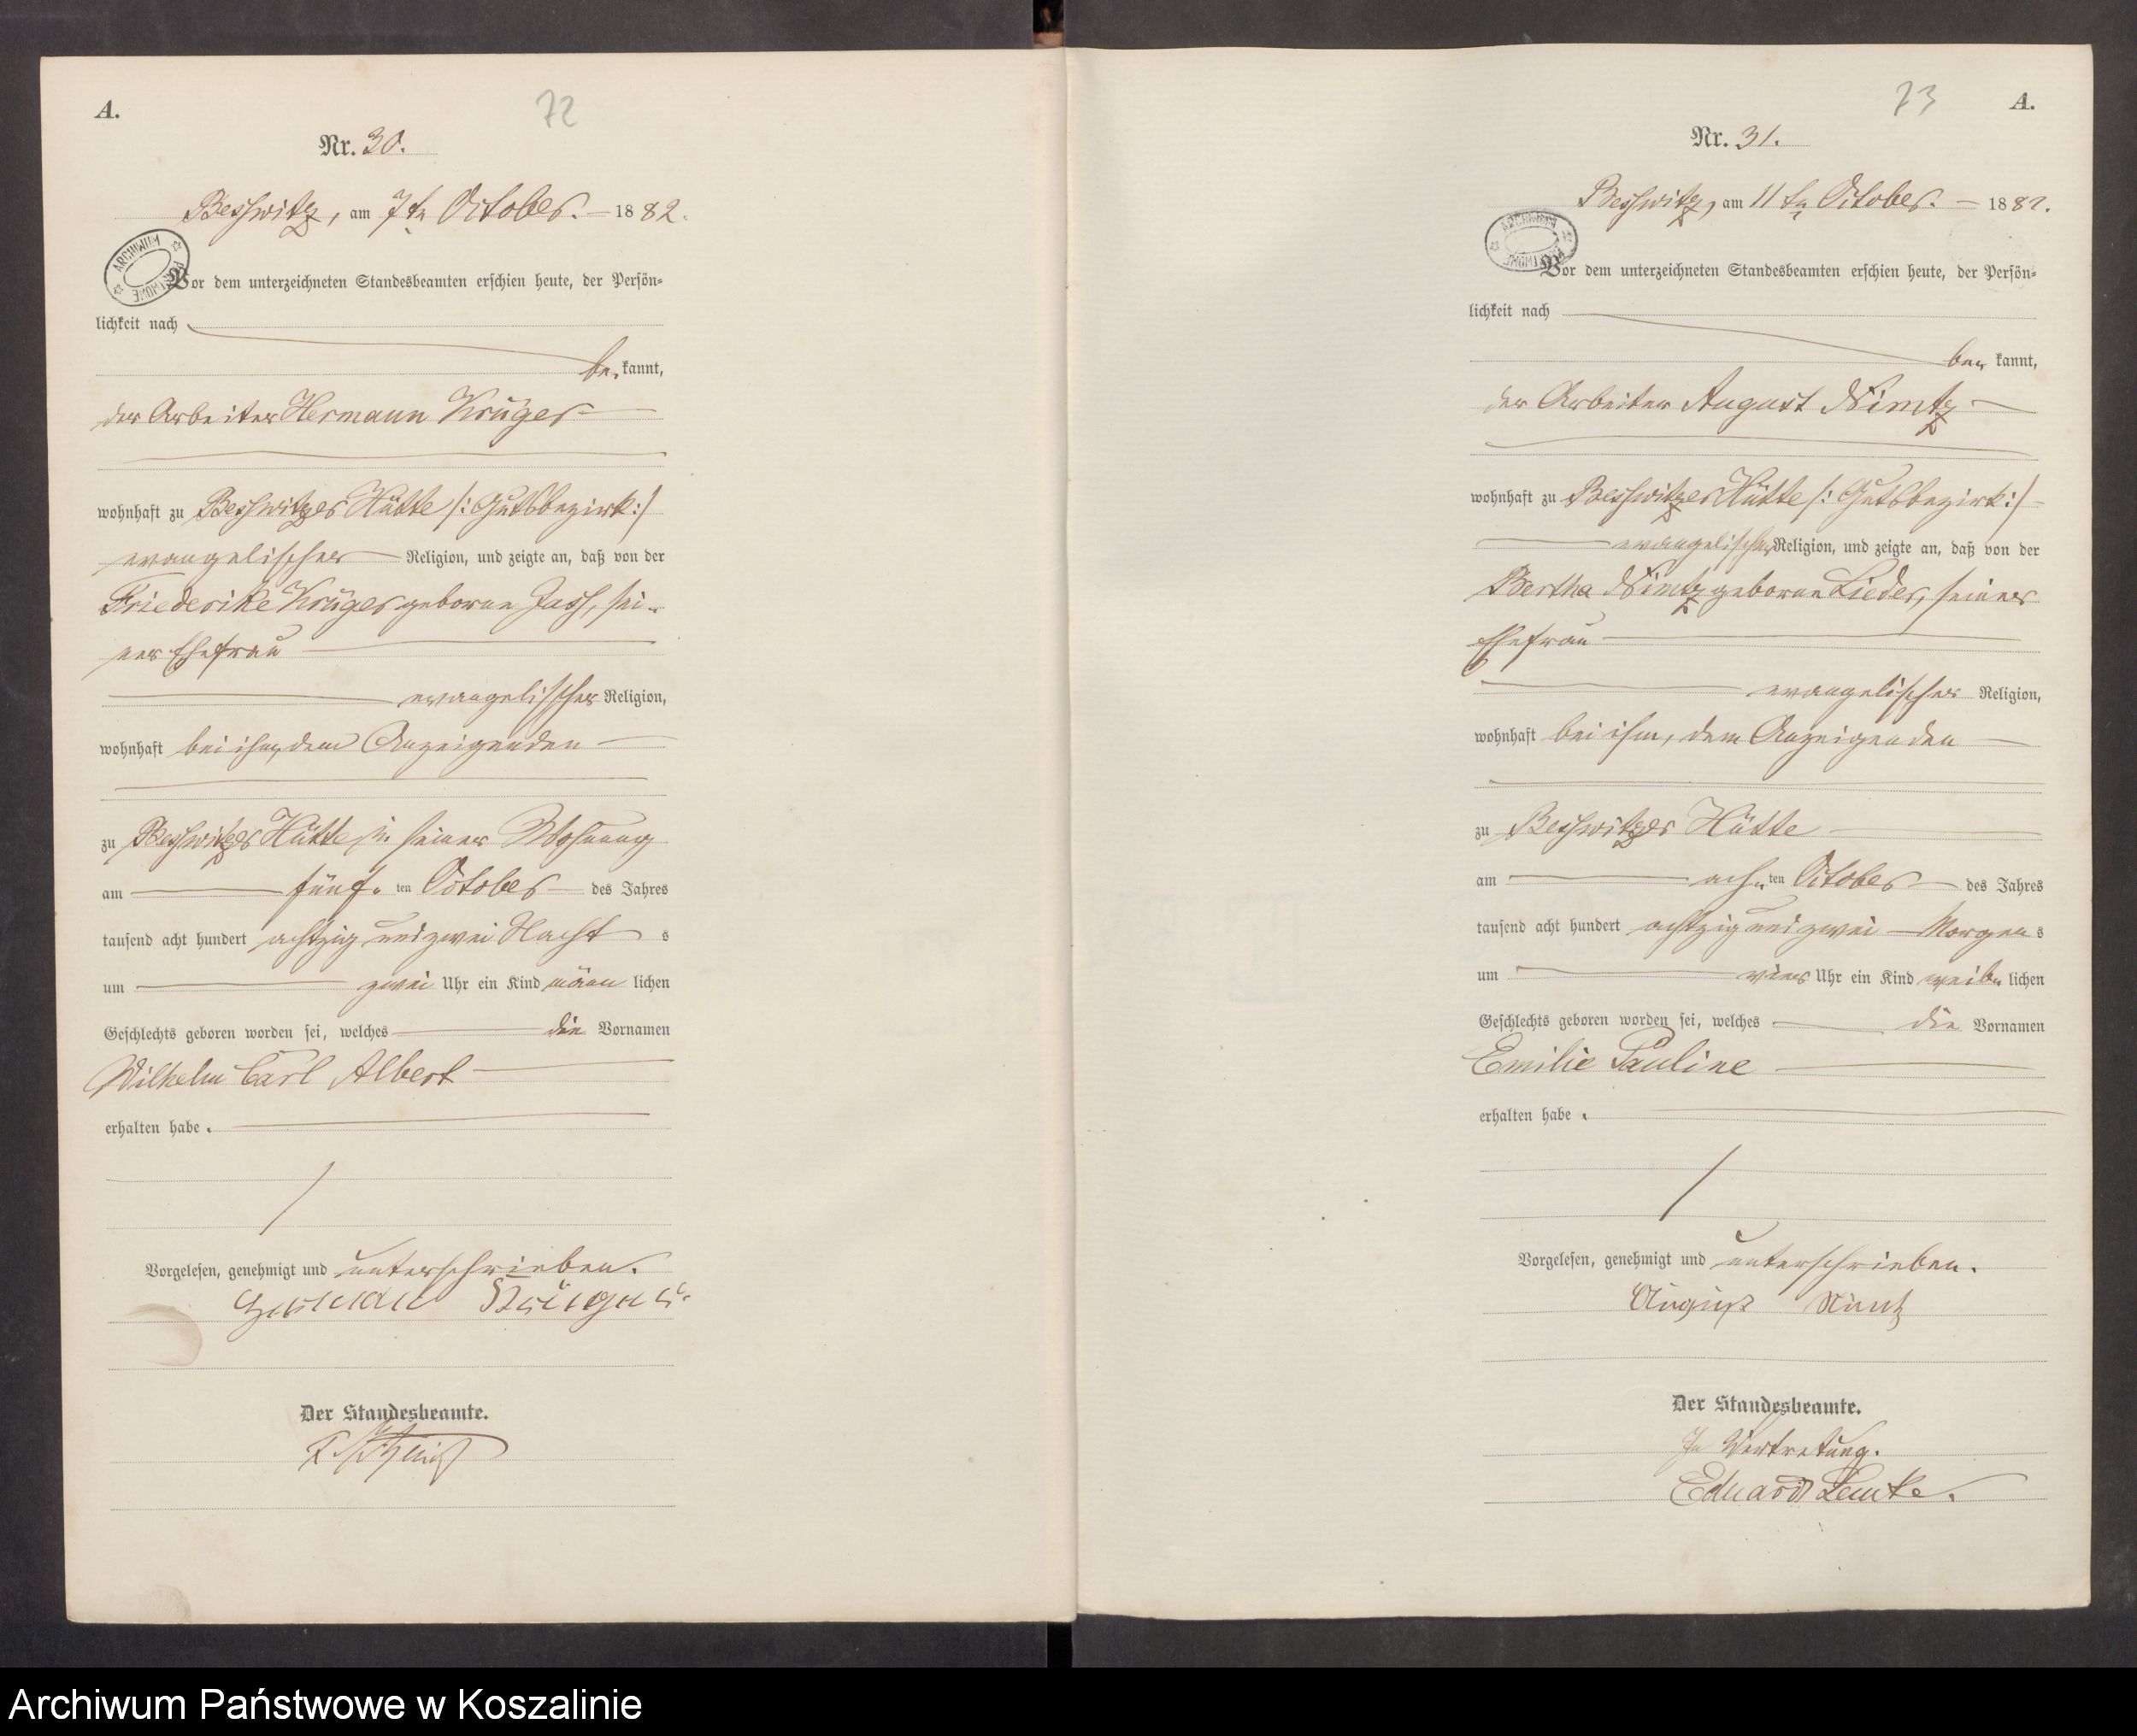 A.
72
Nr. 30.
Besswitz, am 7ten October. 1882.
ARCHIWUM
Vor dem unterzeichneten Standesbeamten erschien heute, der Persön-
lichkeit nach
be kannt,
der Arbeiter Hermann Krüger
wohnhaft zu Besswitzer Hütte /: Gutsbezirk :/
evangelischer Religion, und zeigte an, daß von der
Friederike Krüger geborne Jass, sei-
ner Ehefrau
evangelischer Religion,
wohnhaft bei ihm, dem Anzeigenden
zu Besswitzer Hütte in seiner Wohnung
am fünf ten October des Jahres
tausend acht hundert achtzig und zwei Nacht s
um zwei Uhr ein Kind männ lichen
Geschlechts geboren worden sei, welches die Vornamen
Wilhelm Carl Albert
erhalten habe.
Vorgelesen, genehmigt und unterschrieben.
Herman Krüger
Der Standesbeamte.
73
A.
Nr. 31.
Besswitz, am 11ten October. 1882.
ARCHIWUM
Vor dem unterzeichneten Standesbeamten erschien heute, der Persön-
lichkeit nach
be kannt,
der Arbeiter August Nimtz
wohnhaft zu Besswitzer Hütte /: Gutsbezirk :/
evangelischer Religion, und zeigte an, daß von der
Bertha Nimtz geborne Lieder, seiner
Ehefrau
evangelischer Religion,
wohnhaft bei ihm, dem Anzeigenden
zu Besswitzer Hütte
am ach ten October des Jahres
tausend acht hundert achtzig und zwei Morgen s
um vier Uhr ein Kind weib lichen
Geschlechts geboren worden sei, welches die Vornamen
Emilie Pauline
erhalten habe.
Vorgelesen, genehmigt und unterschrieben.
August Nimtz
Der Standesbeamte.
In Vertretung.
Eduard Lemke.
Archiwum Państwowe w Koszalinie